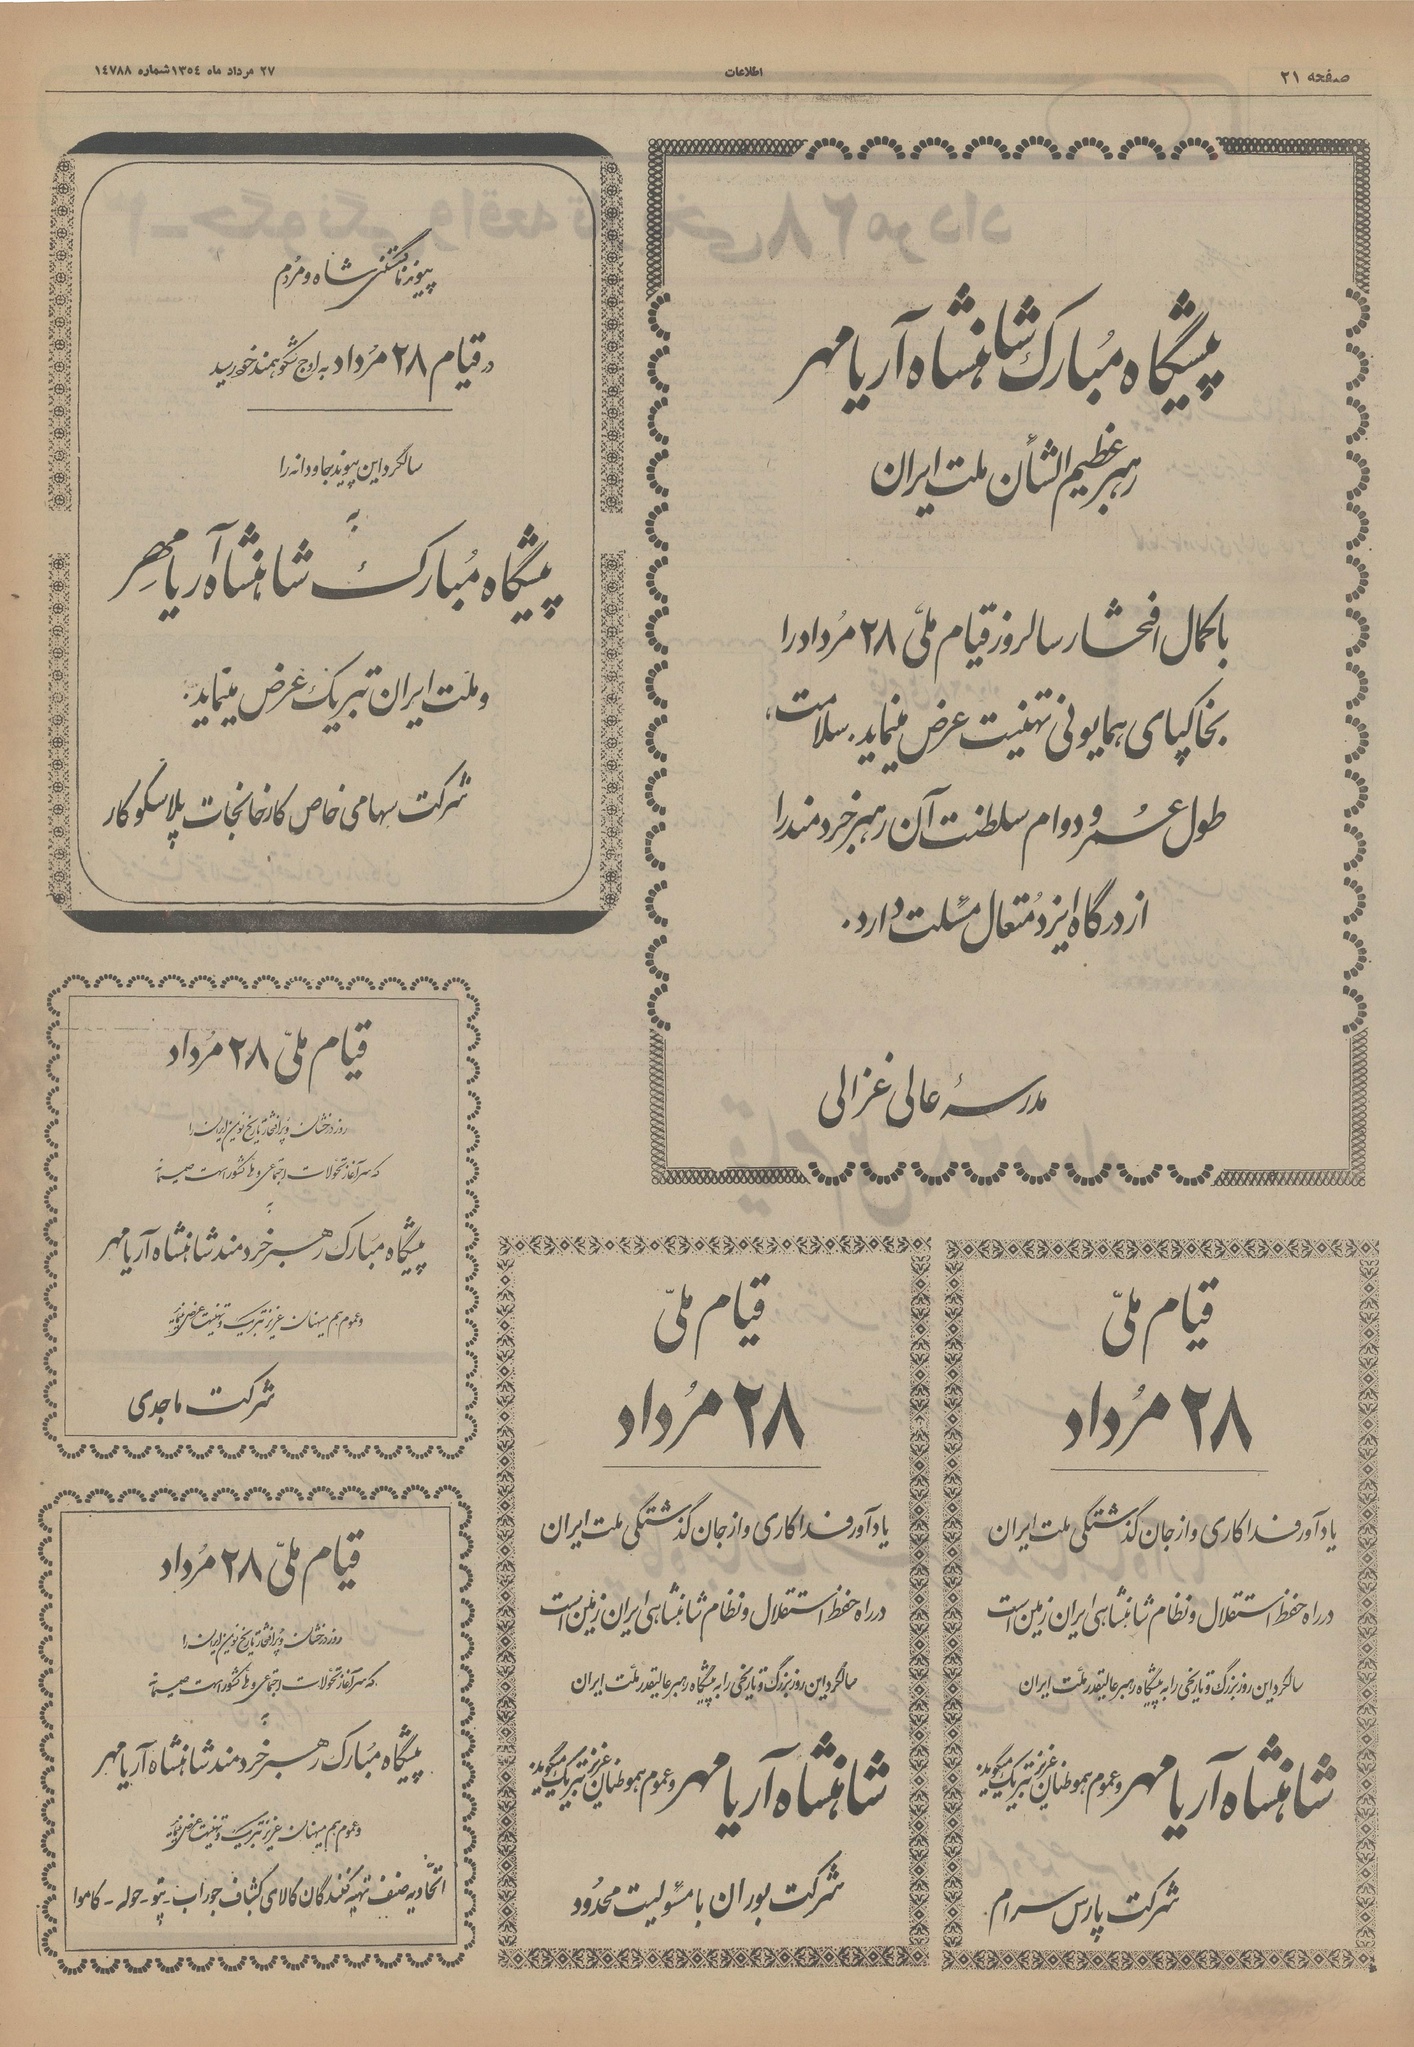 صفحه ۲۱
اطلاعات
۲۷ مرداد ماه ۱۳۵۴ شماره ۱٤۷۸۸
پیشگاه مبارک شاهنشاه آریامهر
رهبر عظیم الشأن ملت ایران
با کمال افتخار سالروز قیام ملّی ۲۸ مُرداد را
بخاکپای همایونی تهنیت عرض مینماید. سلامت،
طول عمر و دوام سلطنت آن رهبر خردمند را
از درگاه ایزد مُتعال مسئلت دارد.
مدرسهٔ عالی غزالی
پیوند ناگسستنی شاه و مردُم
در قیام ۲۸ مُرداد به اوج شکوهمند خود رسید
سالگرد این پیوند جاودانه را
به
پیشگاه مُبارک شاهنشاه آریامهر
و ملّت ایران تبریک عرض مینماید.
شرکت سهامی خاص کارخانجات پلاسکوکار
قیام ملّی ۲۸ مُرداد
روز درخشان و پرافتخار تاریخ نوین ایران را
که سرآغاز تحولات اجتماعی و ملی کشور است صمیمانه
به
پیشگاه مبارک رهبر خردمند شاهنشاه آریامهر
و عموم هم میهنان عزیز تبریک و تهنیت عرض مینماید
شرکت ماجدی
قیام ملّی ۲۸ مُرداد
روز درخشان و پرافتخار تاریخ نوین ایران را
که سرآغاز تحولات اجتماعی و ملی کشور است صمیمانه
به
پیشگاه مبارک رهبر خردمند شاهنشاه آریامهر
و عموم هم میهنان عزیز تبریک و تهنیت عرض مینماید
اتّحادیه صنف تهیه کنندگان کالای کشباف جوراب - پتو - حوله - کاموا
قیام ملّی
۲۸ مُرداد
یادآور فداکاری و از جان گذشتگی ملت ایران
در راه حفظ استقلال و نظام شاهنشاهی ایران زمین است
سالگرد این روز بزرگ و تاریخی را به پیشگاه رهبر عالیقدر ملّت ایران
شاهنشاه آریامهر و عموم هموطنان عزیز تبریک میگوید.
شرکت بوران با مسئولیت محدُود
قیام ملّی
۲۸ مُرداد
یادآور فداکاری و از جان گذشتگی ملت ایران
در راه حفظ استقلال و نظام شاهنشاهی ایران زمین است
سالگرد این روز بزرگ و تاریخی را به پیشگاه رهبر عالیقدر ملّت ایران
شاهنشاه آریامهر و عموم هموطنان عزیز تبریک میگوید.
شرکت پارس سرام